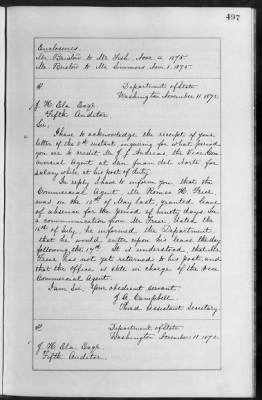 497
Enclosures.
Mr. Bristow to Mr. Fish, Nov. 4 1875.
Mr. Bristow to Mr. Simmons Nov. 1. 1875.
Department of State
Washington November 11. 1875.
J. H. Ela Esqr.
Fifth Auditor
Sir,
I have to acknowledge the receipt of your
letter of the 8th instant, inquiring for what period
you are to credit Mr. J. J. the Vice Com-
mercial Agent at San Juan del Norte for
salary while at his post of duty.
In reply I have to inform you that the
Commercial Agent Mr. H.
was on the 15th of May last, granted leave
of absence for the period of ninety days. In
a communication from Mr. dated the
16th of July he informed the Department
that he would enter upon his leave the day
following, the 17th. It is understood that Mr.
has not yet returned to his post, and
that the office is still in charge of the Vice
Commercial Agent.
I am Sir, Your obedient servant.
J. A. Campbell
Third Assistant Secretary.
Department of State
Washington November 11. 1875.
J. H. Ela Esqr.
Fifth Auditor.